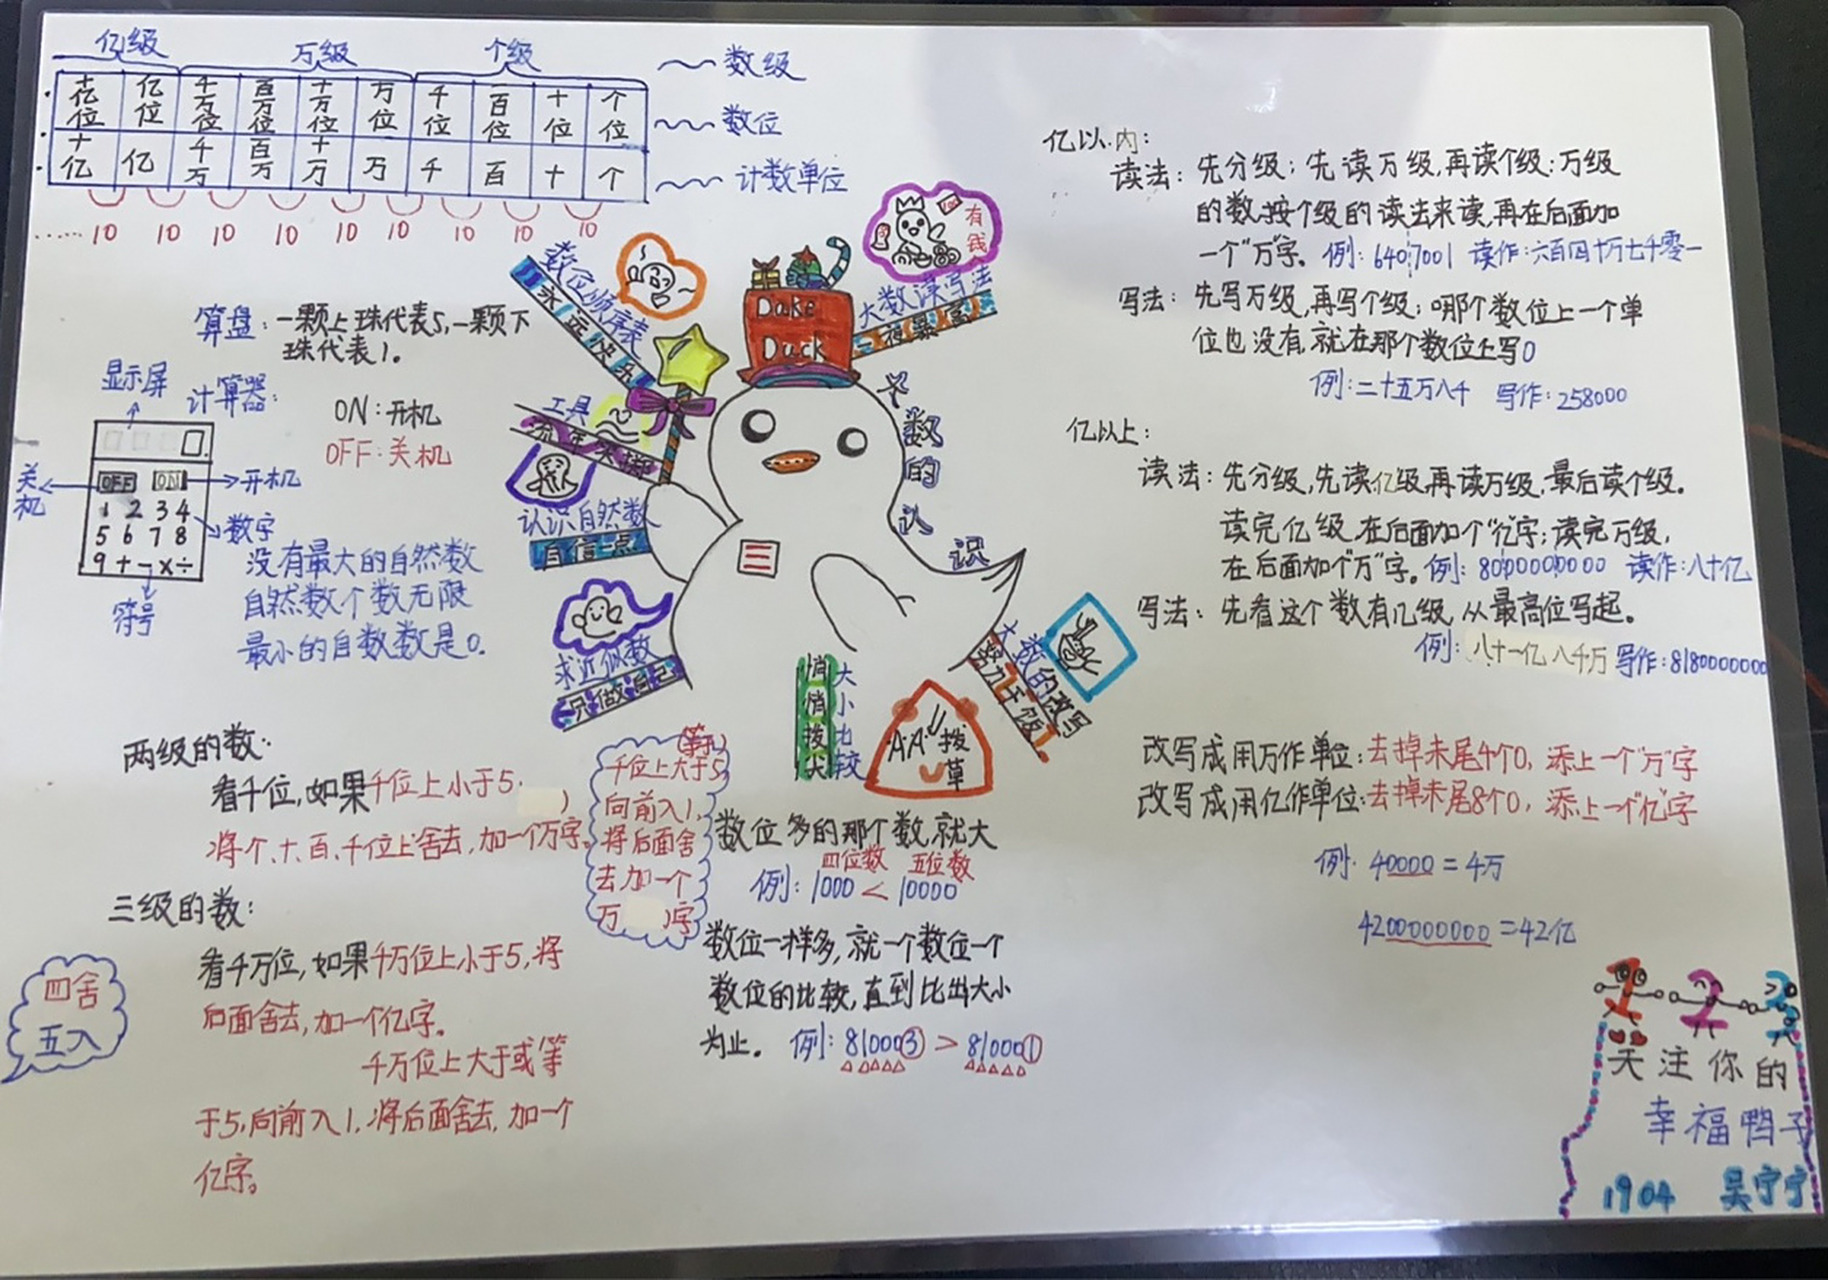 亿级 万级 个级 ~~数级
十亿位 亿位 千万位 百万位 十万位 万位 千位 百位 十位 个位 ~~数位
十亿 亿 千万 百万 十万 万 千 百 十 个 ~~计数单位
……10 10 10 10 10 10 10 10 10
算盘：一颗上珠代表5,一颗下
珠代表1。
显示屏
计算器：
ON：开机
OFF：关机
关机
OFF ON
开机
1 2 3 4
5 6 7 8
9 + - × ÷
数字
符号
没有最大的自然数
自然数个数无限
最小的自数数是0.
数位顺序表
永远快乐
工具
认识自然数
自信一点
求近似数
只做自己
Dake
Duck
有钱
大数读写法
一夜暴富
大数的认识
大数的改写
努力干饭
大小比较
悄悄拔尖
A.A.拔草
亿以内：
读法：先分级；先读万级,再读个级：万级
的数按个级的读法来读,再在后面加
一个“万”字。例：6407001 读作：六百四十万七千零一
写法：先写万级,再写个级；哪个数位上一个单
位也没有,就在那个数位上写0
例：二十五万八千 写作：258000
亿以上：
读法：先分级,先读亿级,再读万级,最后读个级。
读完亿级,在后面加个“亿”字；读完万级,
在后面加个“万”字。例：8000000000 读作：八十亿
写法：先看这个数有几级,从最高位写起。
例：八十一亿八千万 写作：8180000000
改写成用万作单位：去掉末尾4个0, 添上一个“万”字
改写成用亿作单位：去掉末尾8个0, 添上一个“亿”字
例：40000＝4万
4200000000＝42亿
两级的数：
看千位,如果千位上小于5,
将个、十、百、千位上舍去,加一个万字。
(等于)
千位上大于5
向前入1,
将后面舍
去加一个
万 字
三级的数：
看千万位,如果千万位上小于5,将
后面舍去,加一个亿字。
千万位上大于或等
于5,向前入1,将后面舍去,加一个
亿字。
四舍
五入
数位多的那个数,就大
四位数 五位数
例：1000＜10000
数位一样多,就一个数位一个
数位的比较,直到比出大小
为止。例：810003＞810001
关注你的
幸福鸭子
1904 吴宁宁